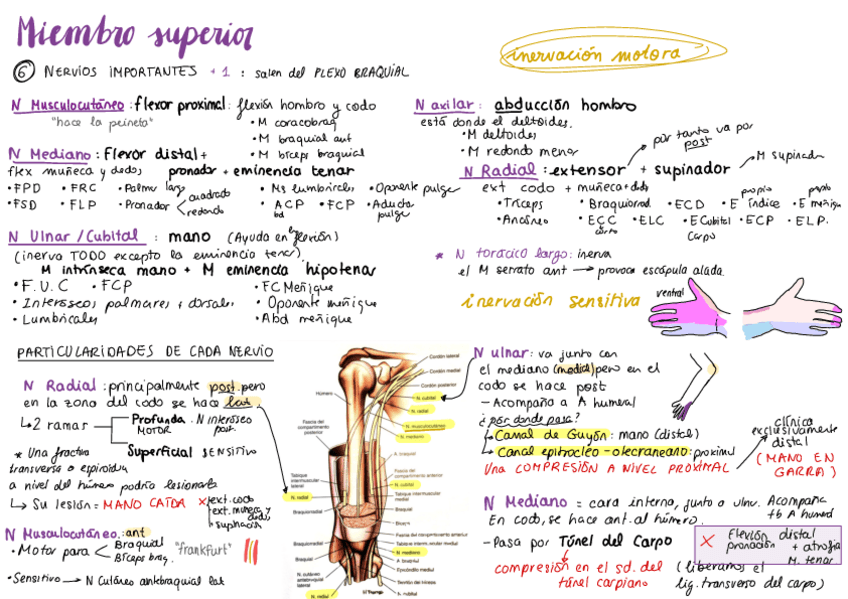 Miembro superior
inervación motora
⑥ NERVIOS IMPORTANTES + 1 : salen del PLEXO BRAQUIAL
N Musculocutáneo : flexor proximal : flexión hombro y codo
"hace la peineta"
• M coracobraq
• M braquial ant
• M bíceps braquial
N Mediano : Flexor distal +
flex muñeca y dedos, pronador + eminencia tenar
• FPD • FRC • Palmar larg • Ms lumbricales • Oponente pulge
• FSD • FLP • Pronador < cuadrado
redondo
• FCP • Aducto pulge
N Ulnar / Cubital : mano (Ayuda en la flexión)
(inerva TODO excepto la eminencia tenar)
M intrínseca mano + M eminencia hipotenar
• F.U.C • FCP • FC Meñique
• Interóseos, palmares + dorsales • Oponente meñique
• Lumbricales • Abd meñique
N axilar : abducción hombro
está donde el deltoides.
• M deltoides
• M redondo menor
por tanto va por
post
N Radial : extensor + supinador
M supinador
ext codo + muñeca + dds
• Tríceps • Braquiorrad • ECD • E propio índice • E propio meñiq
• Ancóneo • ECC corto • ELC • E Cubital Carpo • ECP • ELP.
* N torácico largo : inerva
el M serrato ant → provoca escápula alada.
inervación sensitiva
ventral
PARTICULARIDADES DE CADA NERVIO
N Radial : principalmente post. pero
en la zona del codo se hace lat
↳ 2 ramas
Profunda . N interóseo
MOTOR post.
Superficial SENSITIVO
* Una fractura
transversa o espiroidea
a nivel del húmero podría lesionarle
↳ Su lesión = MANO CAÍDA × ext. codo
ext. muñeca y dedos,
supinación
N Musculocutáneo : ant
• Motor para < Braquial
Bíceps braq.
"frankfurt"
• Sensitivo → N Cutáneo antebraquial lat
Cordón lateral
Cordón medial
Cordón posterior
Húmero
N. cubital
N. radial
N. musculocutáneo
N. mediano
Fascia del
compartimento
posterior
A. braquial
Fascia del
compartimento anterior
N. cubital
Tabique
intermuscular
lateral
Tabique intermuscular
medial
N. radial
Braquiorradial
Braquial
Bíceps
Fascia del compartimento anterior
Braquiorradial
Tabique intermuscular medial
Braquial
N. mediano
A. braquial
N. cutáneo
antebraquial
lateral
Epicóndilo medial
Tendón del bíceps
N. radial
N. cubital
N ulnar : va junto con
el mediano (medial) pero en el
codo se hace post
- Acompaña a A humeral
¿por donde pasa?
↳ Canal de Guyón : mano (distal)
↳ Canal epitrocleo-olecraneano : proximal
Una COMPRESIÓN A NIVEL PROXIMAL
clínica
exclusivamente
distal
(MANO EN
GARRA)
N Mediano = cara interna, junto a ulnar. Acompaña
tb A humeral
En codo, se hace ant. al húmero.
- Pasa por Túnel del Carpo
× Flexión distal
pronación + atrofia
M. tenar
compresión en el sd. del túnel carpiano (liberamos el
lig. transverso del carpo)